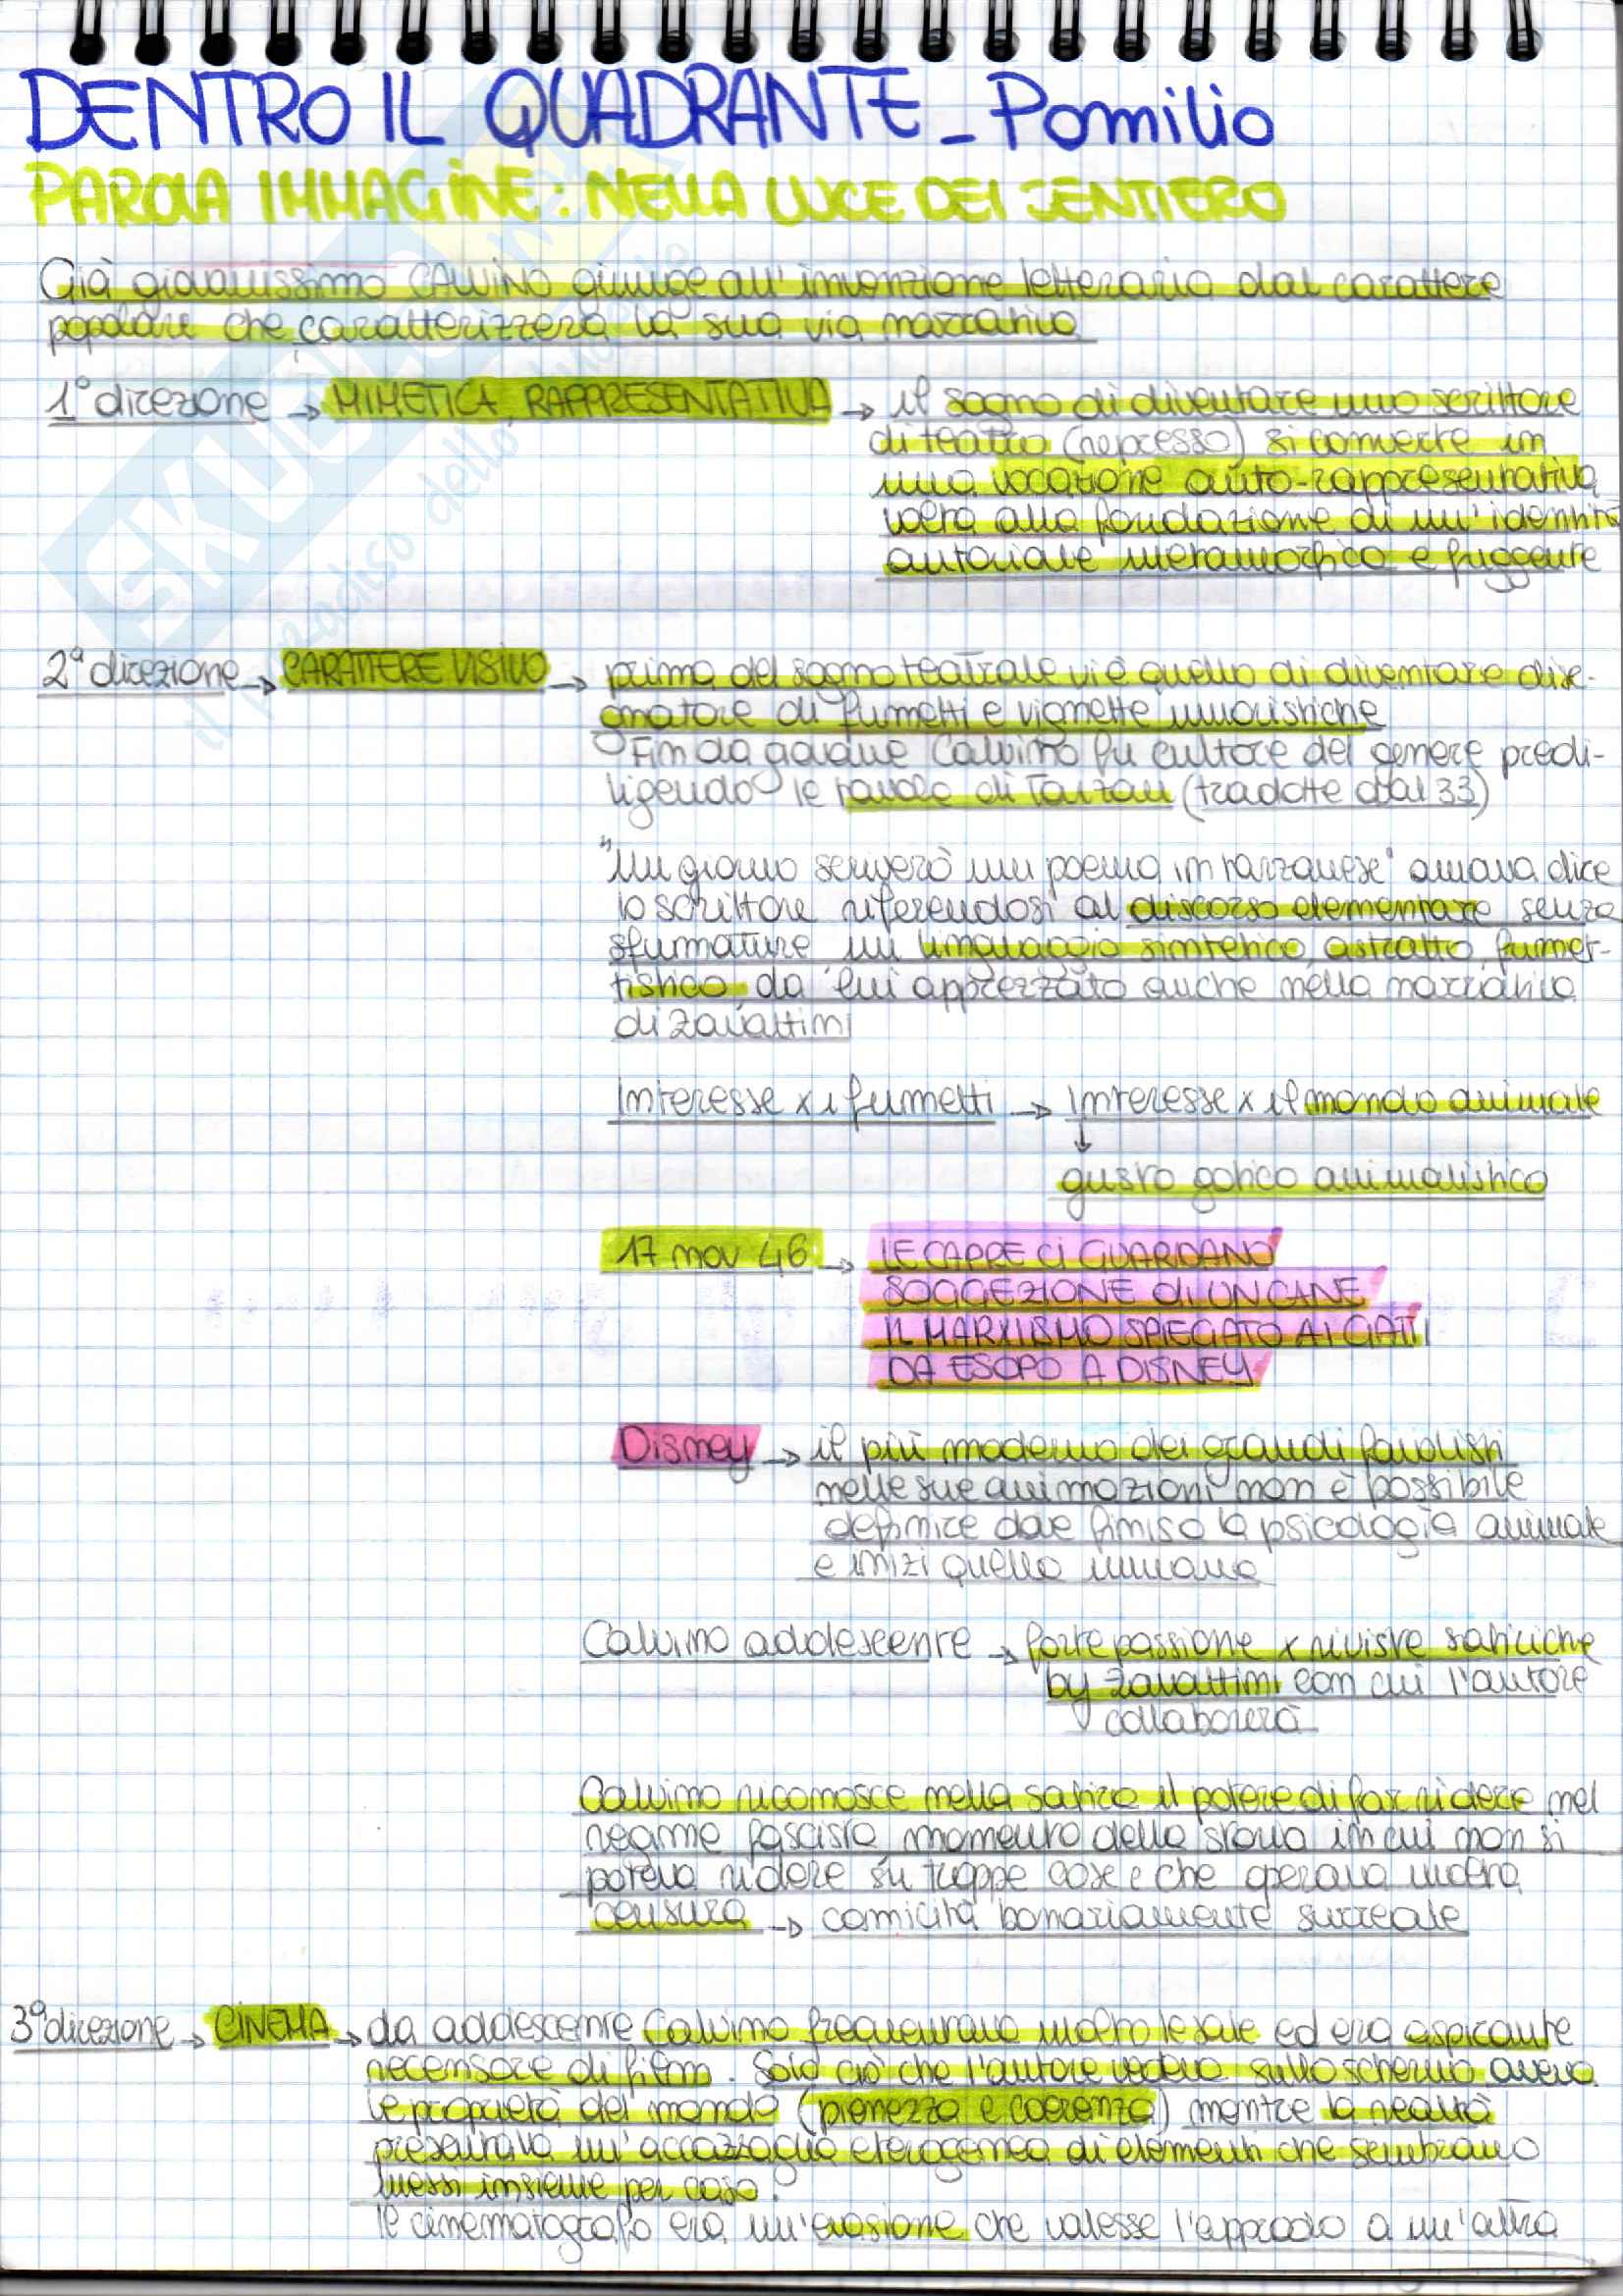 DENTRO IL QUADRANTE - Pomilio
PAROLA IMMAGINE: NELLA LUCE DEL SENTIERO
Già giovanissimo CALVINO giunge all'invenzione letteraria dal carattere
popolare che caratterizzerà la sua via narrativa
1° direzione → MIMETICA, RAPPRESENTATIVA → il sogno di diventare uno scrittore
di teatro (represso) si converte in
una vocazione auto-rappresentativa
volta alla fondazione di un'identità
autoriale metamorfica e fuggente
2ª direzione → CARATTERE VISIVO → prima del sogno teatrale vi è quello di diventare dise-
gnatore di fumetti e vignette umoristiche
Fin da giovane Calvino fu cultore del genere predi-
ligendo le tavole di Tarzan (tradotte dal 33)
"Un giorno scriverò un poema in tarzanese" amava dire
lo scrittore riferendosi al discorso elementare senza
sfumature, un linguaggio sintetico, astratto, fumet-
tistico, da lui apprezzato anche nella narrativa
di Zavattini
Interesse x i fumetti → Interesse x il mondo animale
↓
gusto gotico animalistico
17 nov 46 → LE CAPRE CI GUARDANO
SOGGEZIONE di UN CANE
IL MARXISMO SPIEGATO AI GATTI
DA ESOPO A DISNEY
Disney → il più moderno dei grandi favolisti
nelle sue animazioni non è possibile
definire dove finisca la psicologia animale
e inizi quella umana
Calvino adolescente → forte passione x riviste satiriche
by Zavattini con cui l'autore
collaborerà
Calvino riconosce nella satira il potere di far ridere nel
regime fascista, momento della storia in cui non si
poteva ridere su troppe cose e che operava molta
censura → comicità bonariamente surreale
3ª direzione → CINEMA → da adolescente Calvino frequentava molto le sale ed era aspirante
recensore di film. Solo ciò che l'autore vedeva sullo schermo aveva
le proprietà del mondo (pienezza e coerenza) mentre la realtà
presentava un'accozzaglia eterogenea di elementi che sembrano
messi insieme per caso.
Il cinematografo era un'evasione che valesse l'approdo a un'altra
SKUOLA.net
il paradiso dello studente